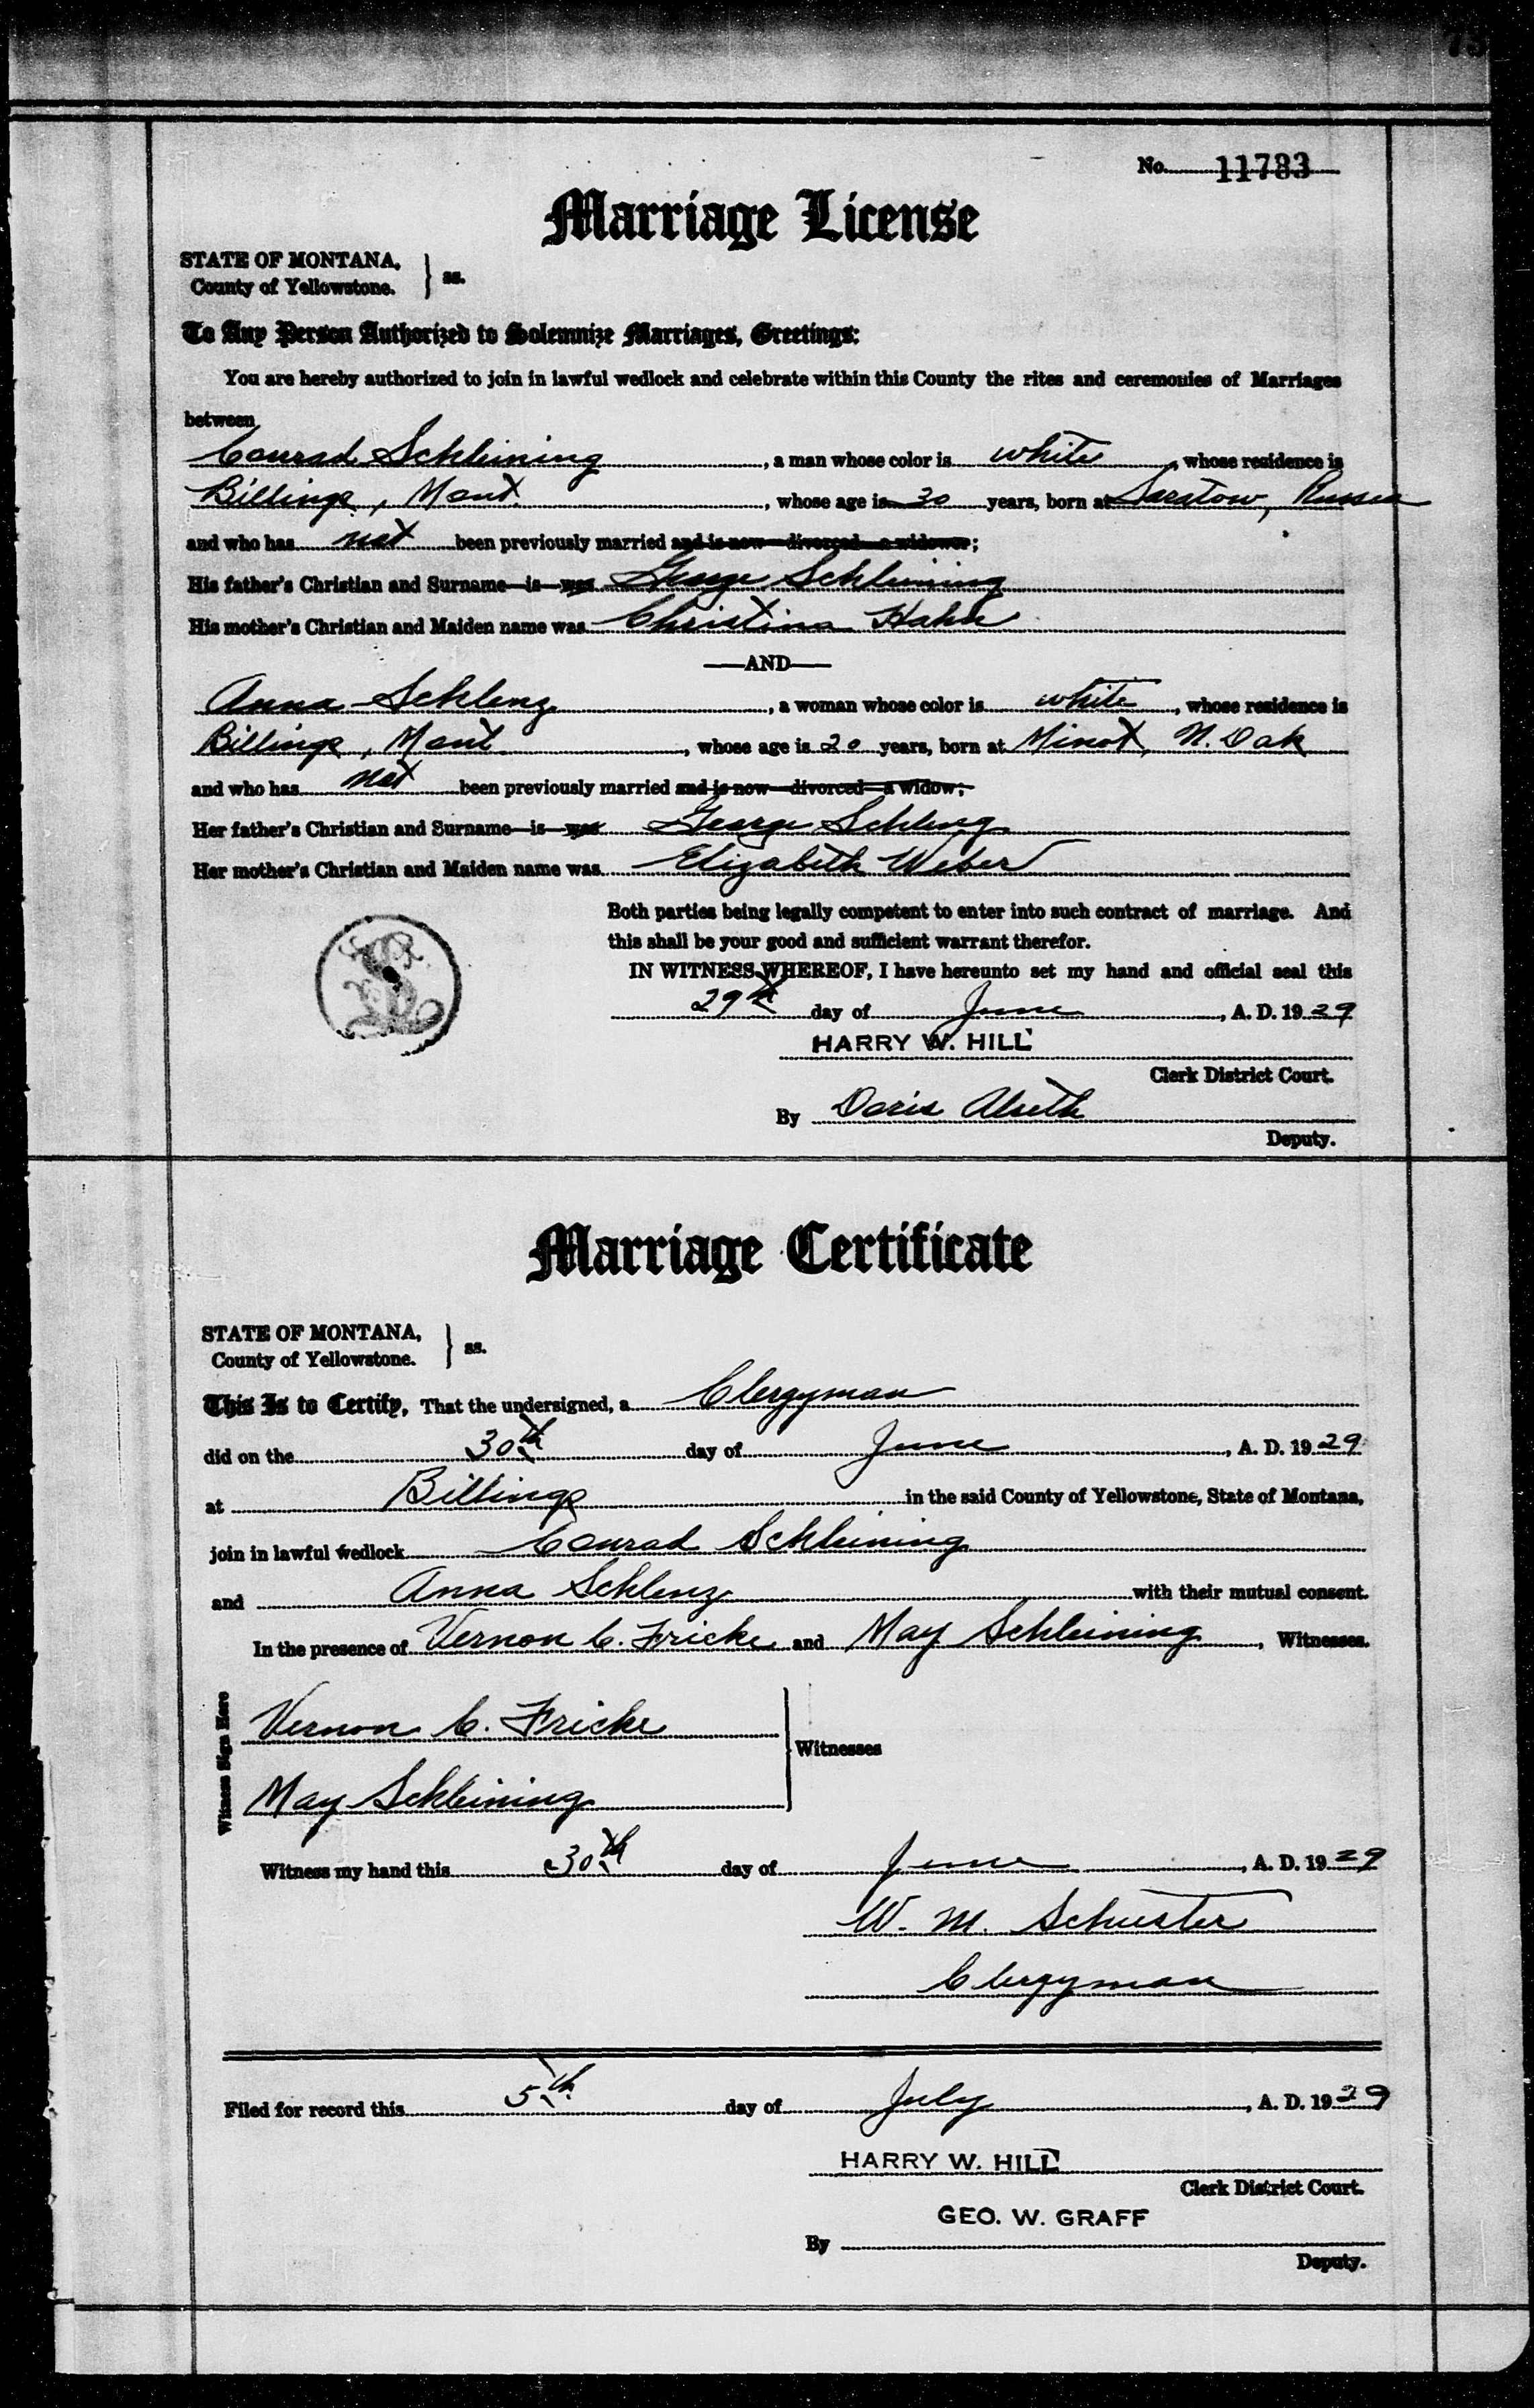 73
No. 11783
Marriage License
STATE OF MONTANA,
County of Yellowstone. } ss.
To Any Person Authorized to Solemnize Marriages, Greetings:
You are hereby authorized to join in lawful wedlock and celebrate within this County the rites and ceremonies of Marriages
between
Conrad Schleining, a man whose color is white, whose residence is
Billings, Mont., whose age is 30 years, born at Saratow, Russia
and who has not been previously married and is now—divorced—a widower;
His father's Christian and Surname—is—was George Schleining
His mother's Christian and Maiden name was Christina Hahn
—AND—
Anna Schlenz, a woman whose color is white, whose residence is
Billings, Mont, whose age is 20 years, born at Minot, N. Dak
and who has not been previously married and is now—divorced—a widow;
Her father's Christian and Surname—is—was George Schlenz
Her mother's Christian and Maiden name was Elizabeth Weber
Both parties being legally competent to enter into such contract of marriage. And
this shall be your good and sufficient warrant therefor.
IN WITNESS WHEREOF, I have hereunto set my hand and official seal this
29th day of June, A. D. 1929
HARRY W. HILL
Clerk District Court.
By Doris Alseth
Deputy.
Marriage Certificate
STATE OF MONTANA,
County of Yellowstone. } ss.
This Is to Certify, That the undersigned, a Clergyman
did on the 30th day of June, A. D. 1929
at Billings in the said County of Yellowstone, State of Montana,
join in lawful wedlock Conrad Schleining
and Anna Schlenz with their mutual consent.
In the presence of Vernon C. Fricke and May Schleining, Witnesses.
Witness Sign Here
Vernon C. Fricke
Witnesses
May Schleining
Witness my hand this 30th day of June, A. D. 1929
W. M. Schuster
Clergyman
Filed for record this 5th day of July, A. D. 1929
HARRY W. HILL
Clerk District Court.
GEO. W. GRAFF
By
Deputy.